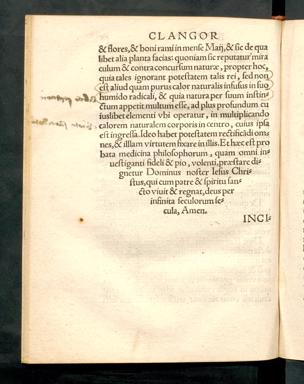 CLANGOR
& flores, & boni rami in mense Maij, & sic de qua
libet alia planta facias: quoniam sic reputatur mira
culum & contra concursum naturæ, propter hoc,
quia tales ignorant potestatem talis rei, sed non
est aliud quam purus calor naturalis infusus in suo
humido radicali, & quia natura per suum instin-
ctum appetit multum esse, ad plus profundum cu
iuslibet elementi vbi operatur, in multiplicando
calorem naturalem corporis in centro, cuius ipsa
est ingressa. Ideo habet potestatem rectificādi om-
nes, & illam virtutem fixare in illis. Et hæc est pro
bata medicina philosophorum, quam omni in-
uestiganti fideli & pio, volenti, præstare di
gnetur Dominus noster Iesus Chri-
stus, qui cum patre & spiritu san-
cto viuit & regnat, deus per
infinita seculorum se
cula, Amen.
INCI-